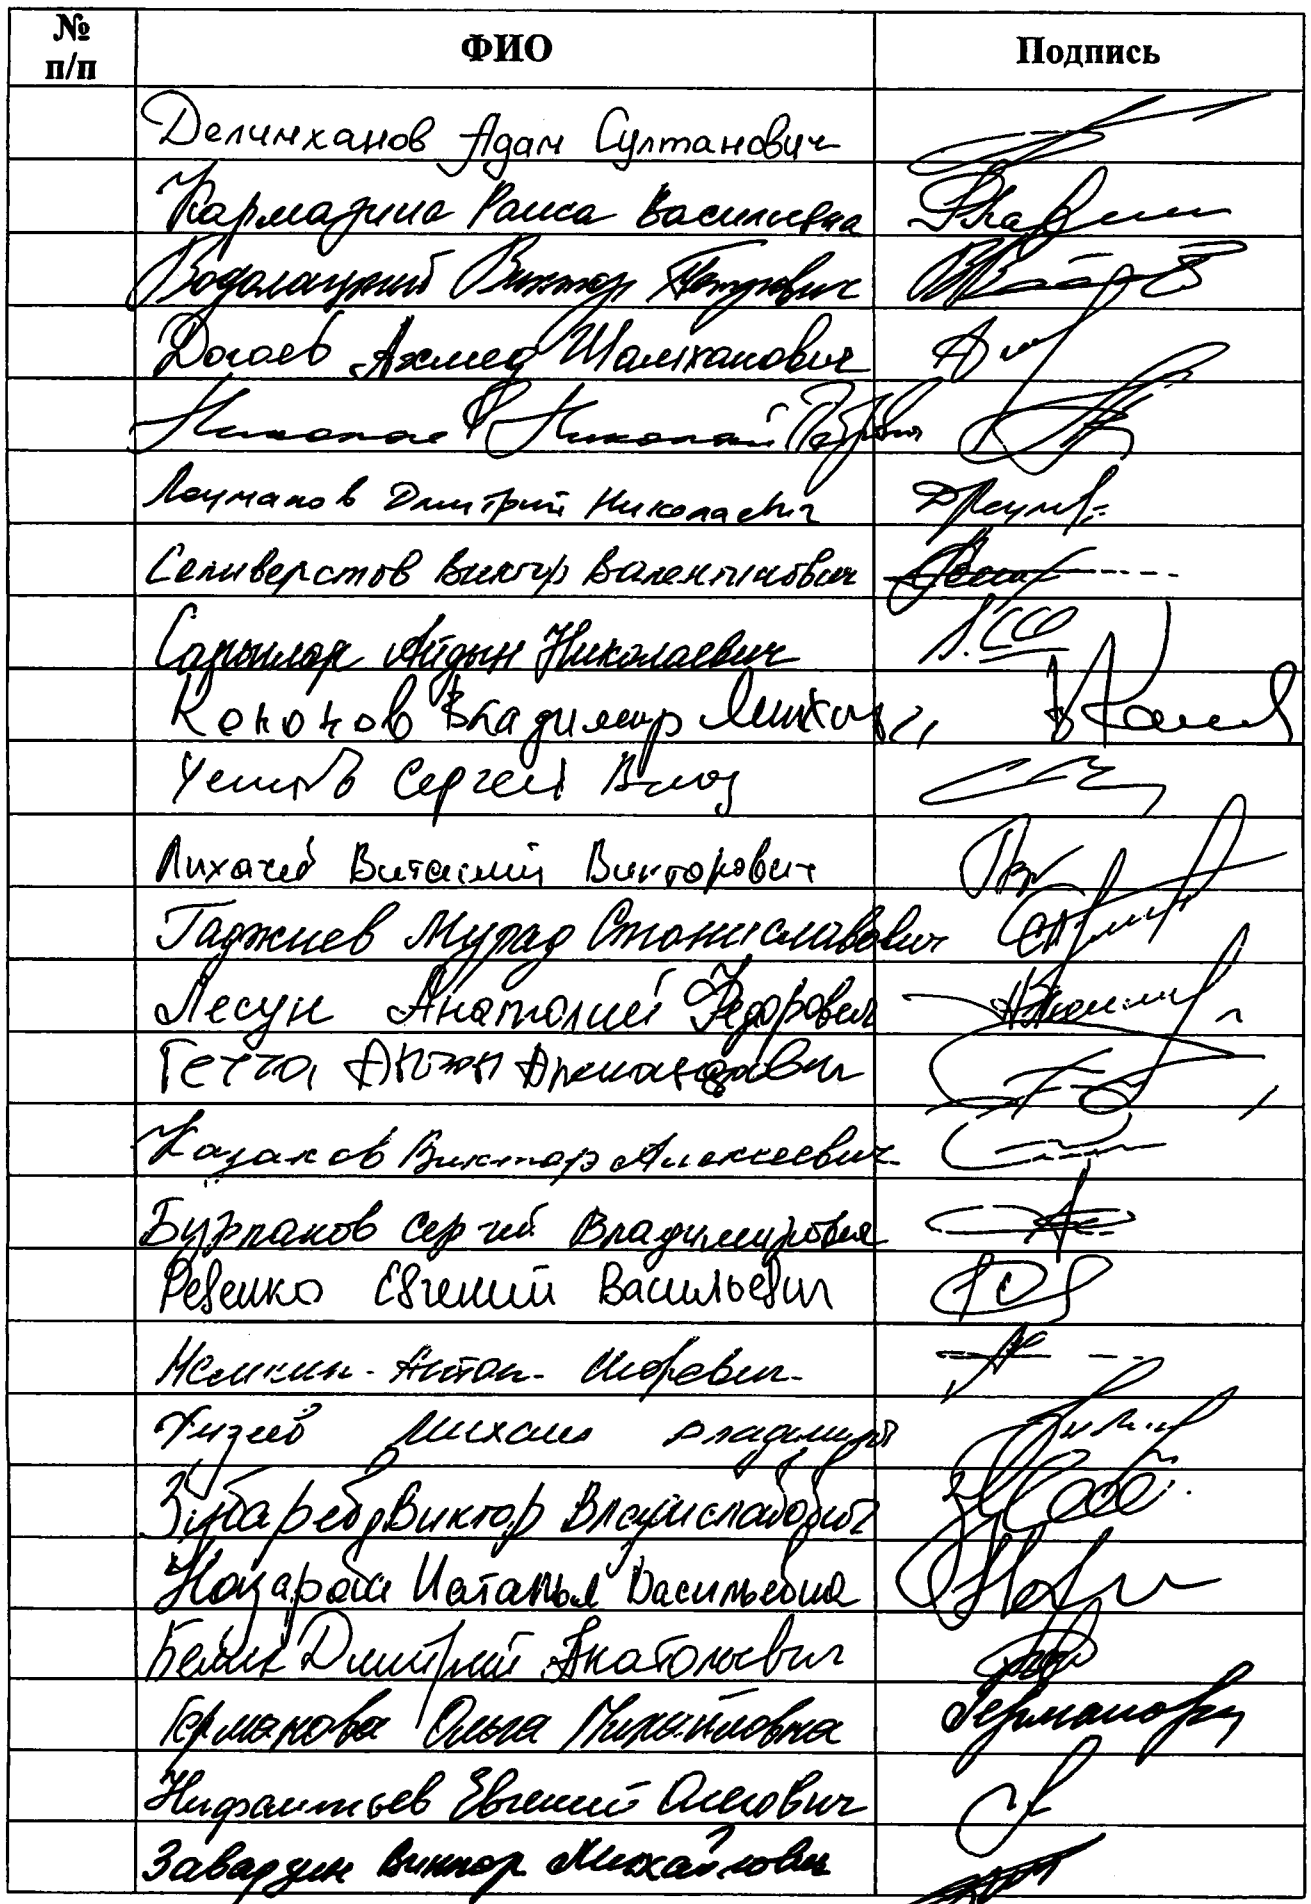 № п/п ФИО Подпись
Делимханов Адам Султанович
Кармазина Раиса Васильевна
Водолацкий Виктор Петрович
Догаев Ахмед Шамханович
Николаев Николай Петрович
Лоцманов Дмитрий Николаевич
Селиверстов Виктор Валентинович
Сарыглар Айдын Николаевич
Кононов Владимир Михайл
Сергей
Лихачев Виталий Викторович
Гаджиев Мурад Станиславович
Лесун Анатолий Федорович
Гетта Антон Александрович
Казаков Виктор Алексеевич
Бурлаков Сергей Владимирович
Ревенко Евгений Васильевич
Немкин Антон Игоревич
Кизеев Михаил Владимиров
Зубарев Виктор Владиславович
Назарова Наталья Васильевна
Белик Дмитрий Анатольевич
Германова Ольга Михайловна Германова
Нифантьев Евгений Олегович
Заварзин Виктор Михайлович